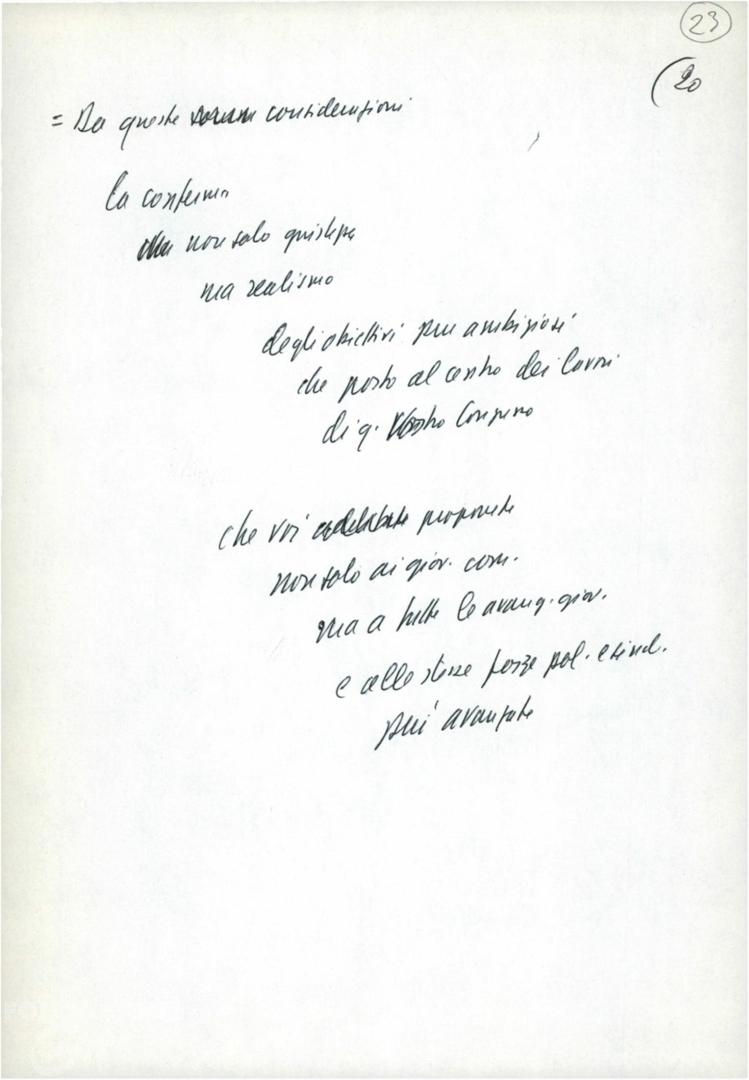 23
(20
= Da queste considerazioni
la conferma
non solo giustezza
ma realismo
degli obiettivi più ambiziosi
che posto al centro dei lavori
di q. Vostro Congresso
che voi proponete
non solo ai giov. com.
ma a tutte le avang. giov.
e alle stesse forze pol. e sind.
più avanzate